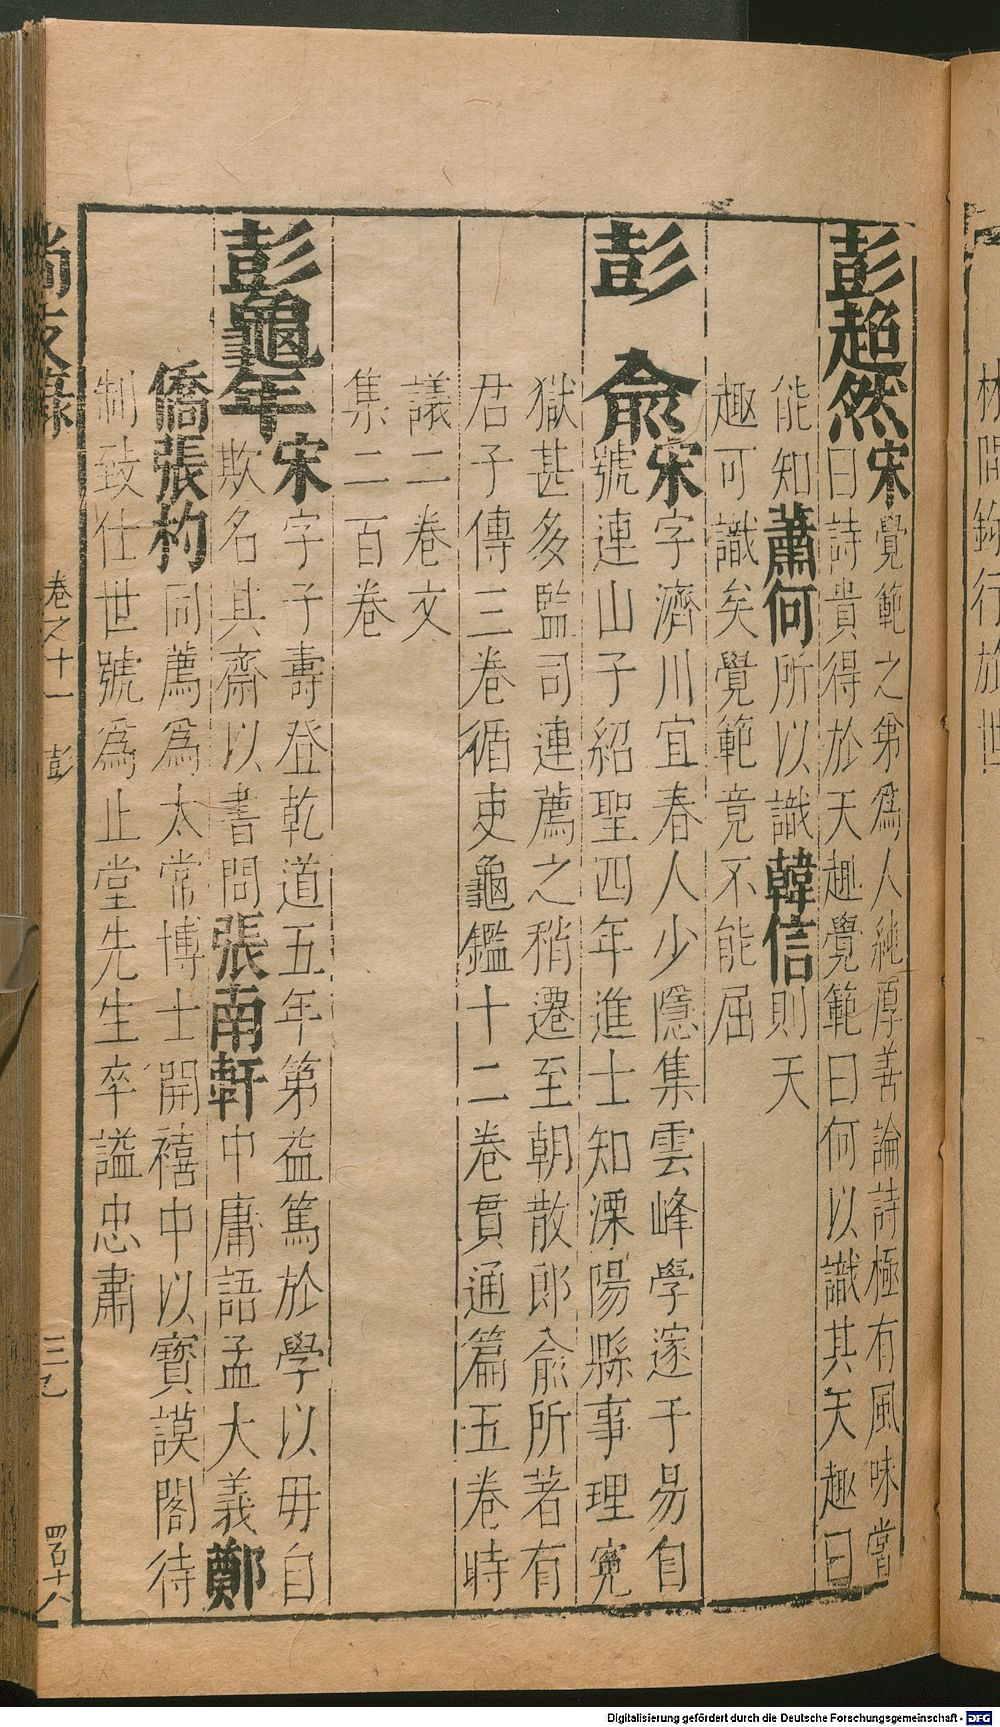 彭超然宋覺範之弟爲人純厚善論詩極有風味嘗
曰詩貴得於天趣覺範曰何以識其天趣曰
能知蕭何所以識韓信則天
趣可識矣覺範竟不能屈
彭俞宋字濟川宜春人少隱集雲峰學邃于易自
號連山子紹聖四年進士知溧陽縣事理冤
獄甚多監司連薦之稍遷至朝散郎俞所著有
君子傳三卷循吏龜鑑十二卷貫通篇五卷時
議二卷文
集二百卷
彭龜年宋字子壽登乾道五年第益篤於學以毋自
欺名其齋以書問張南軒中庸語孟大義鄭
僑張杓同薦爲太常博士開禧中以寶謨閣待
制致仕世號爲止堂先生卒謚忠肅
尚友錄
卷之十一
彭
三乙
四百十八
林間鉤行於世
Digitalisierung gefördert durch die Deutsche Forschungsgemeinschaft - DFG